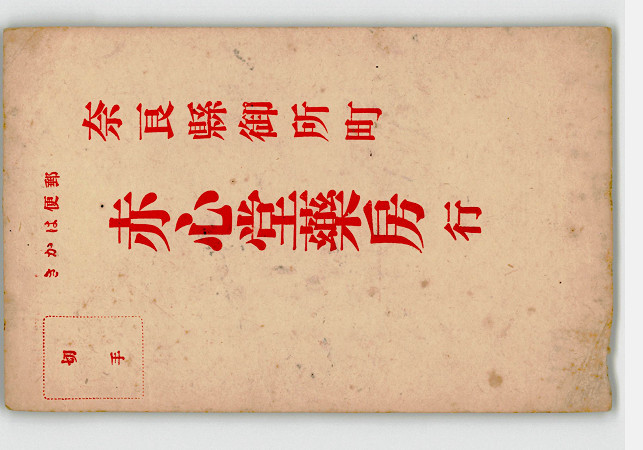 郵便はかき
奈良縣御所町
赤心堂藥房行
切手